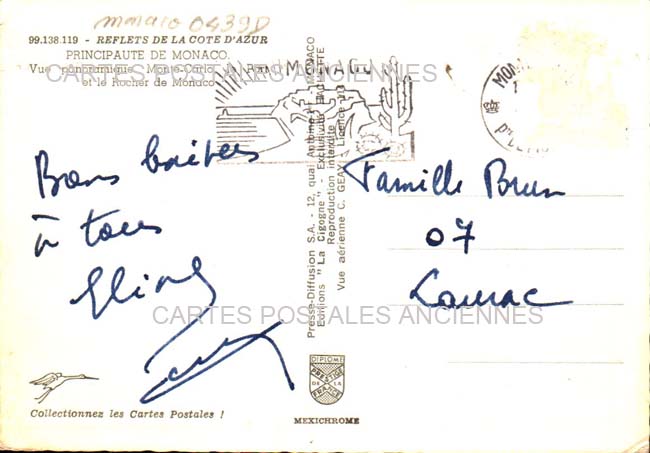 monaco 0439D
99.138.119 - REFLETS DE LA COTE D'AZUR
PRINCIPAUTE DE MONACO.
Vue panoramique: Monte-Carlo, le Port
et le Rocher de Monaco
MONACO
CARTES POSTALES ANCIENNES
Bons baisers
à tous
Eliane
Famille Brun
07
Lamac
CARTES POSTALES ANCIENNES
Presse-Diffusion S.A. - 12, quai Antoine 1er - MONACO
Editions "La Cigogne" - Exclusivité HACHETTE
Reproduction interdite
Vue aérienne C. GEAY Licence
DIPLOME
PRESTIGE
DE LA
FRANCE
Collectionnez les Cartes Postales !
MEXICHROME